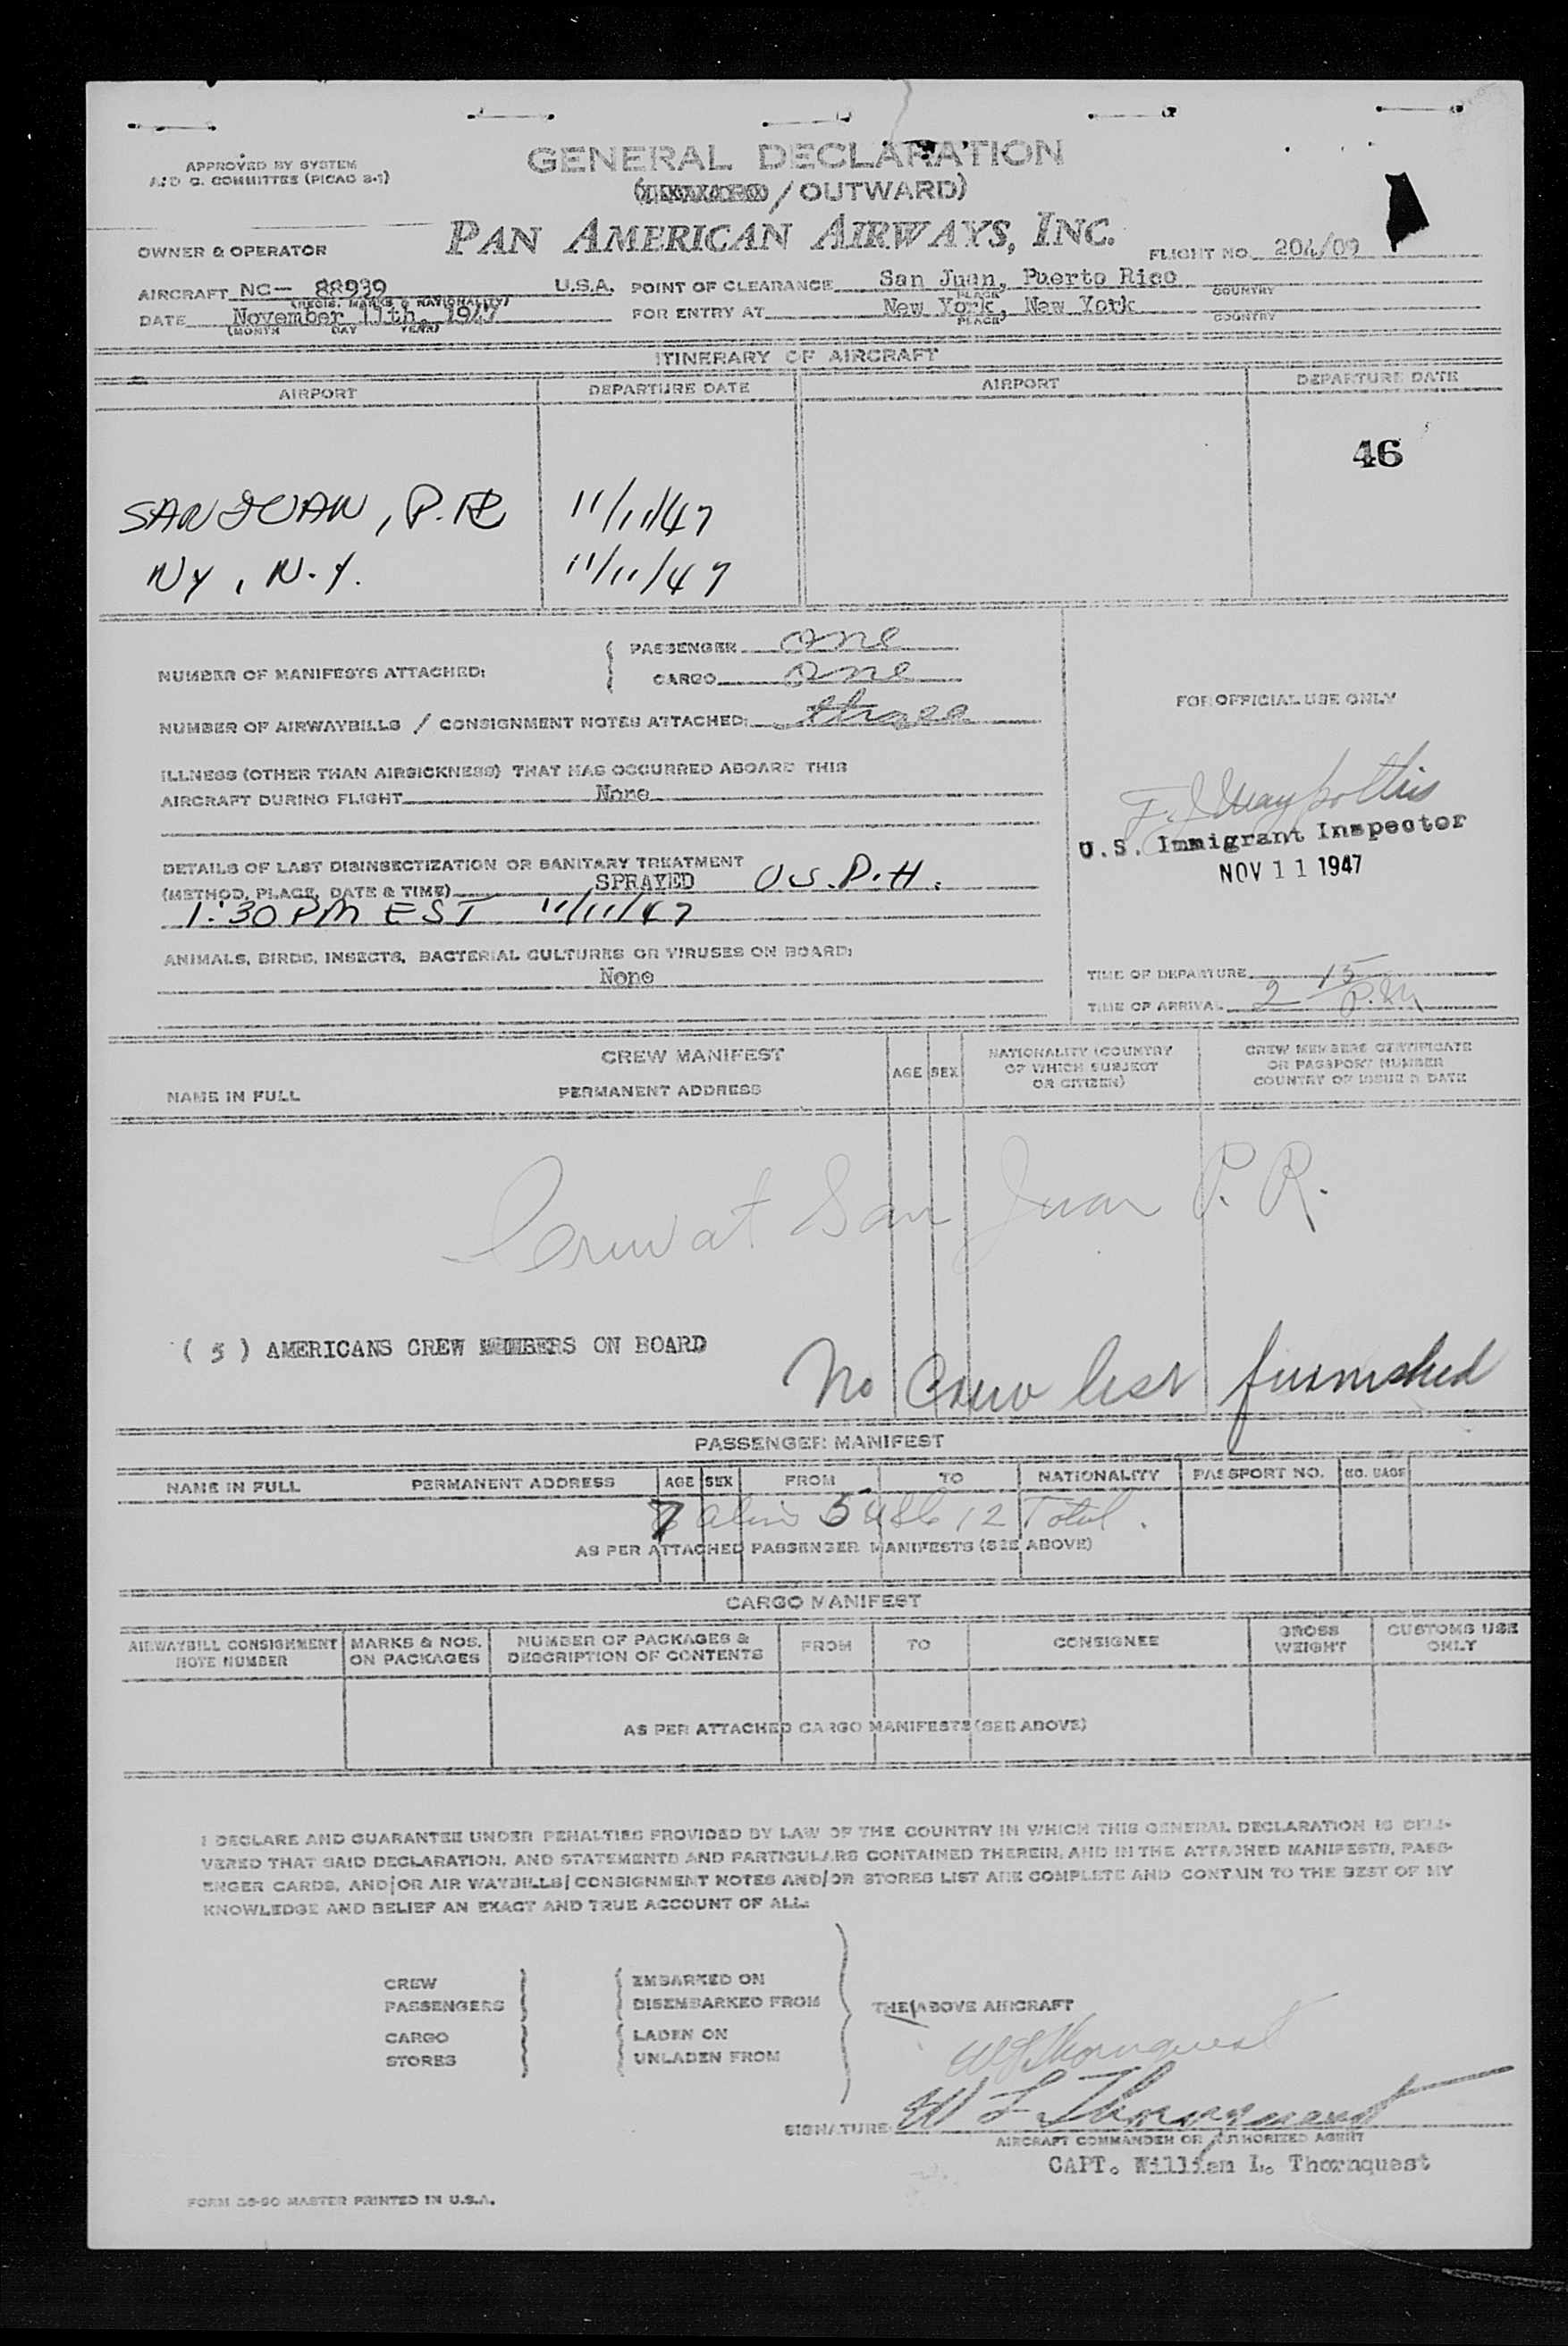 APPROVED BY SYSTEM
AND C. COMMITTEE (PICAO 2-1)
GENERAL DECLARATION
(INWARD / OUTWARD)
PAN AMERICAN AIRWAYS, INC.
OWNER & OPERATOR
FLIGHT NO. 204/09
AIRCRAFT NC- 88939 U.S.A. POINT OF CLEARANCE San Juan, Puerto Rico
(REGIS. MARKS & NATIONALITY) PLACE COUNTRY
DATE November 11th, 1947 FOR ENTRY AT New York, New York
(MONTH DAY YEAR) PLACE COUNTRY
ITINERARY OF AIRCRAFT
AIRPORT DEPARTURE DATE AIRPORT DEPARTURE DATE
46
SAN JUAN, P.R. 11/11/47
NY, N.Y. 11/11/47
NUMBER OF MANIFESTS ATTACHED: PASSENGER one
CARGO one
NUMBER OF AIRWAYBILLS / CONSIGNMENT NOTES ATTACHED: three
FOR OFFICIAL USE ONLY
ILLNESS (OTHER THAN AIRSICKNESS) THAT HAS OCCURRED ABOARD THIS
AIRCRAFT DURING FLIGHT None
U.S. Immigrant Inspector
NOV 11 1947
DETAILS OF LAST DISINSECTIZATION OR SANITARY TREATMENT
(METHOD, PLACE, DATE & TIME) SPRAYED U.S.P.H.
1:30 PM EST 11/11/47
ANIMALS, BIRDS, INSECTS, BACTERIAL CULTURES OR VIRUSES ON BOARD:
None
TIME OF DEPARTURE
TIME OF ARRIVAL 2 15 P.M
CREW MANIFEST
NAME IN FULL PERMANENT ADDRESS AGE SEX NATIONALITY (COUNTRY OF WHICH SUBJECT OR CITIZEN) CREW MEMBERS CERTIFICATE OR PASSPORT NUMBER COUNTRY OF ISSUE & DATE
Crew at San Juan P. R.
( 5 ) AMERICANS CREW MEMBERS ON BOARD
No Crew list furnished
PASSENGER MANIFEST
NAME IN FULL PERMANENT ADDRESS AGE SEX FROM TO NATIONALITY PASSPORT NO. NO. BAGS
7 5 12 Total.
AS PER ATTACHED PASSENGER MANIFESTS (SEE ABOVE)
CARGO MANIFEST
AIRWAYBILL CONSIGNMENT NOTE NUMBER MARKS & NOS. ON PACKAGES NUMBER OF PACKAGES & DESCRIPTION OF CONTENTS FROM TO CONSIGNEE GROSS WEIGHT CUSTOMS USE ONLY
AS PER ATTACHED CARGO MANIFESTS (SEE ABOVE)
I DECLARE AND GUARANTEE UNDER PENALTIES PROVIDED BY LAW OF THE COUNTRY IN WHICH THIS GENERAL DECLARATION IS DELI-
VERED THAT SAID DECLARATION, AND STATEMENTS AND PARTICULARS CONTAINED THEREIN, AND IN THE ATTACHED MANIFESTS, PASS-
ENGER CARDS, AND/OR AIR WAYBILLS/CONSIGNMENT NOTES AND/OR STORES LIST ARE COMPLETE AND CONTAIN TO THE BEST OF MY
KNOWLEDGE AND BELIEF AN EXACT AND TRUE ACCOUNT OF ALL:
CREW EMBARKED ON
PASSENGERS DISEMBARKED FROM THE ABOVE AIRCRAFT
CARGO LADEN ON
STORES UNLADEN FROM
W L Thornquest
SIGNATURE W L Thornquest
AIRCRAFT COMMANDER OR AUTHORIZED AGENT
CAPT. William L. Thornquest
FORM 36-90 MASTER PRINTED IN U.S.A.